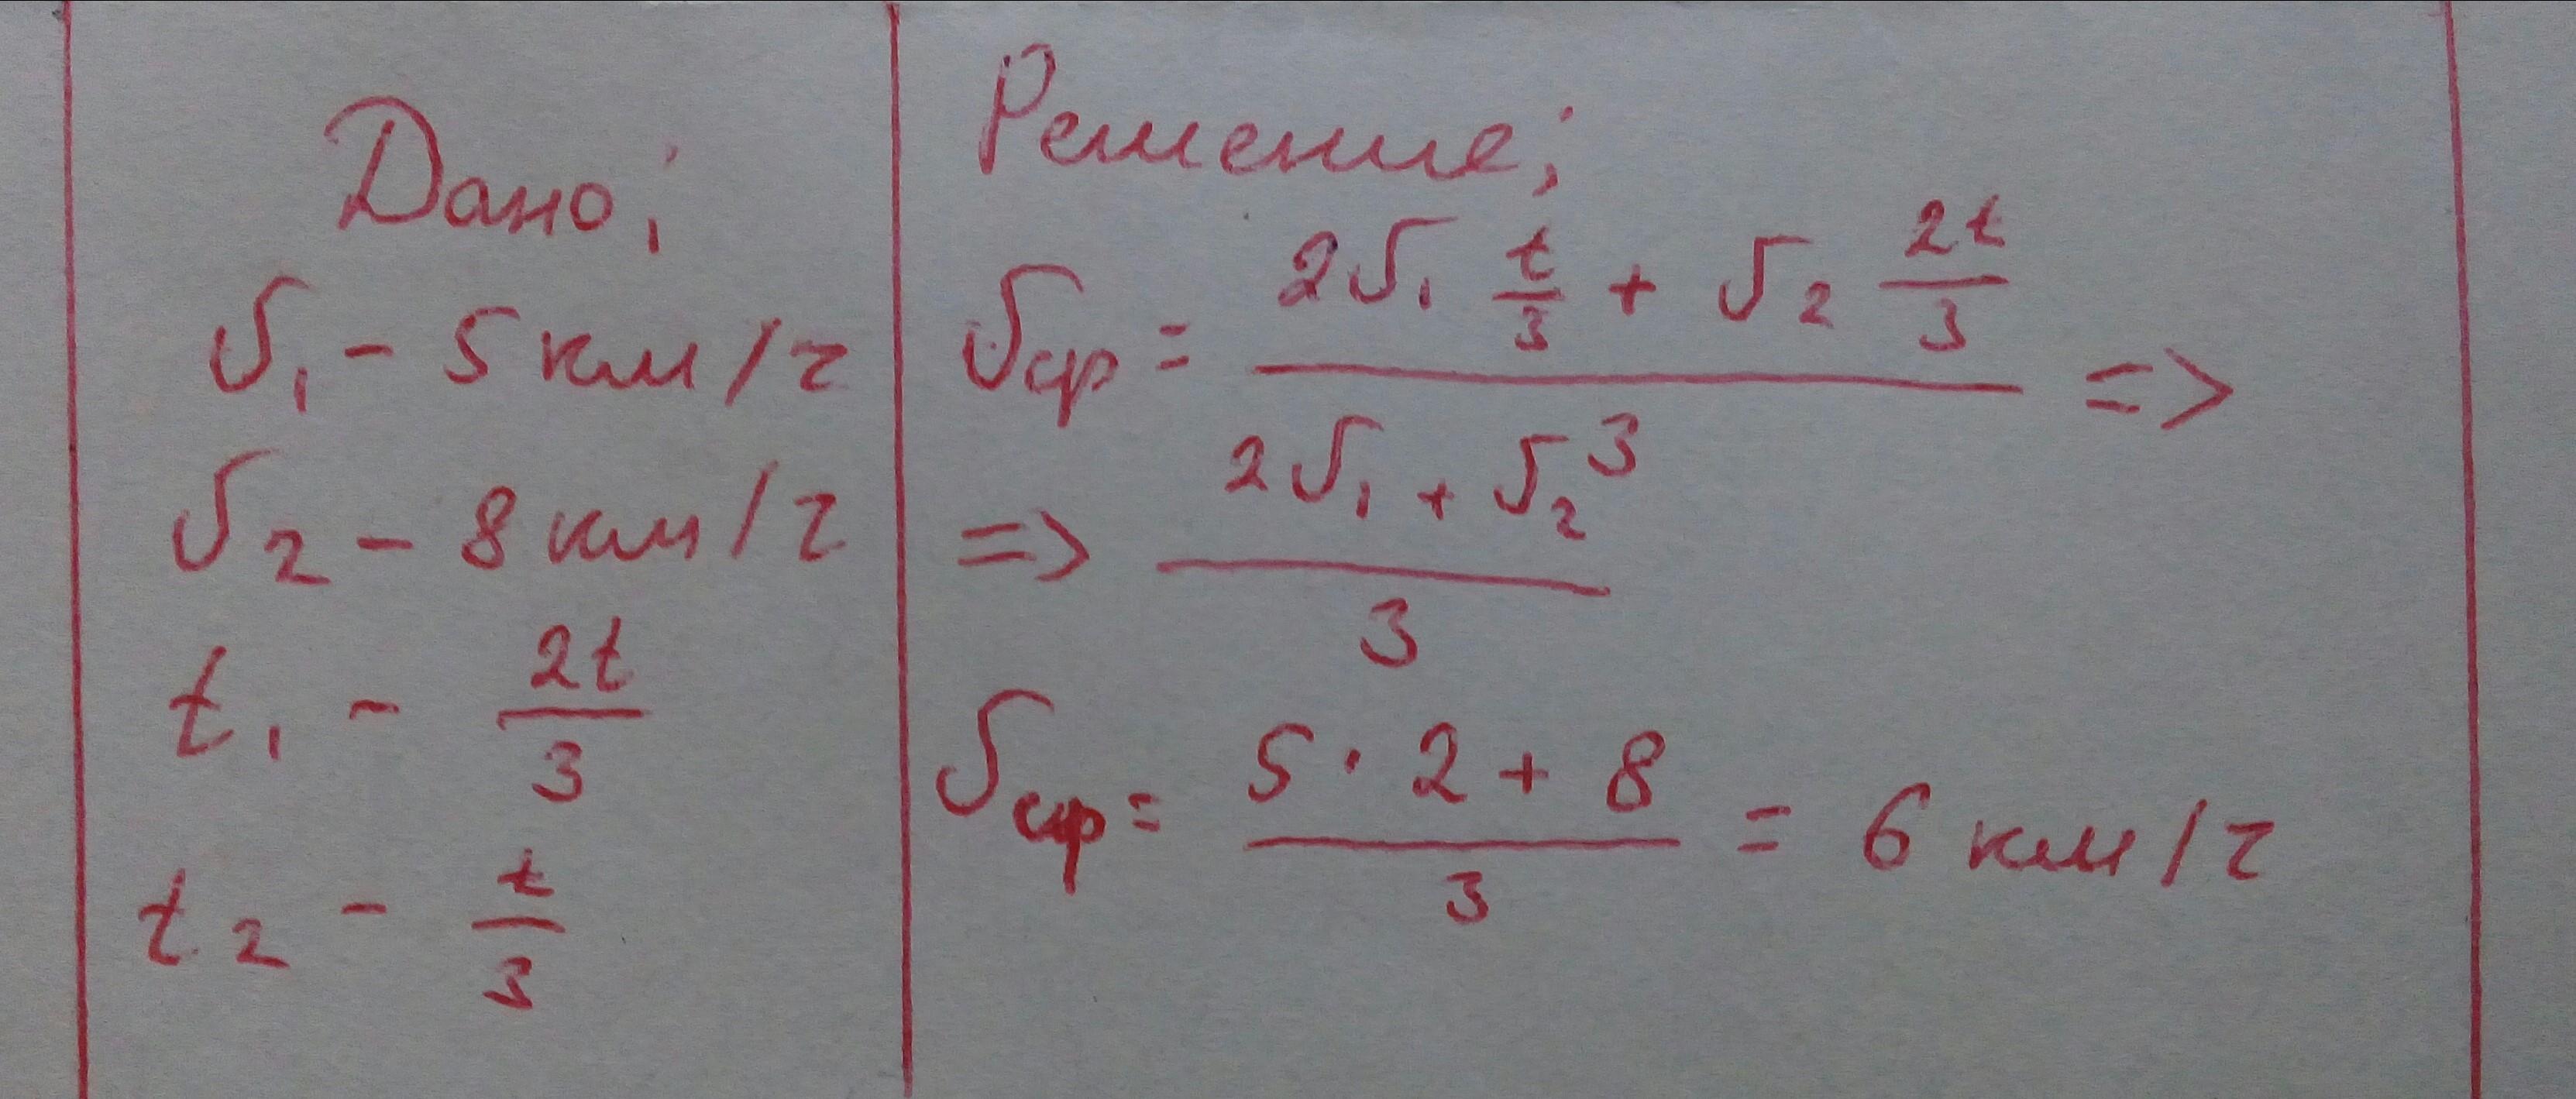 Дано:
υ₁ - 5 км/ч
υ₂ - 8 км/ч
t₁ - 2t/3
t₂ - t/3
Решение:
υср = (2υ₁ t/3 + υ₂ 2t/3)/3 =>
=> (2υ₁ + υ₂)/3
υср = (5 · 2 + 8)/3 = 6 км/ч